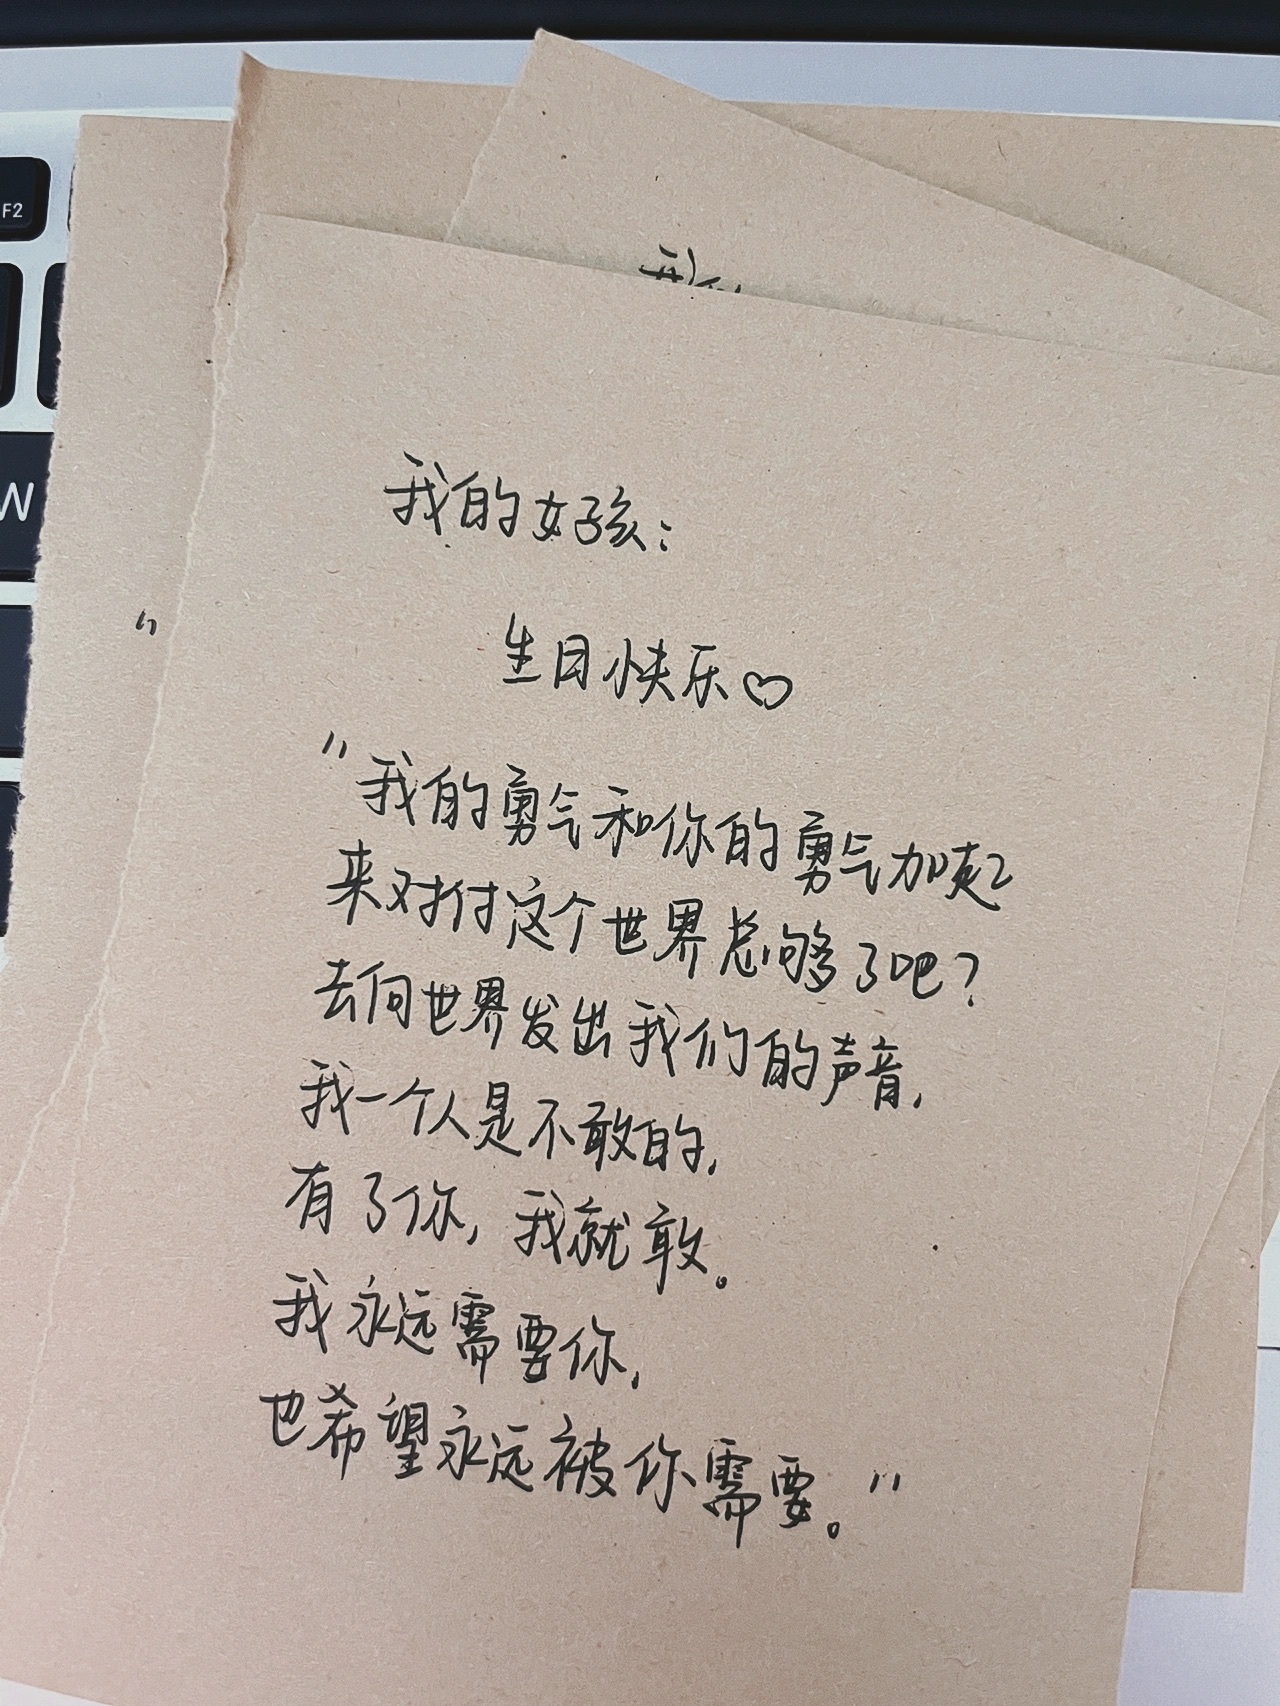 F2
W
我的女孩：
生日快乐♡
"我的勇气和你的勇气加起
来对付这个世界总够了吧？
去向世界发出我们的声音，
我一个人是不敢的，
有了你，我就敢。
我永远需要你，
也希望永远被你需要。"